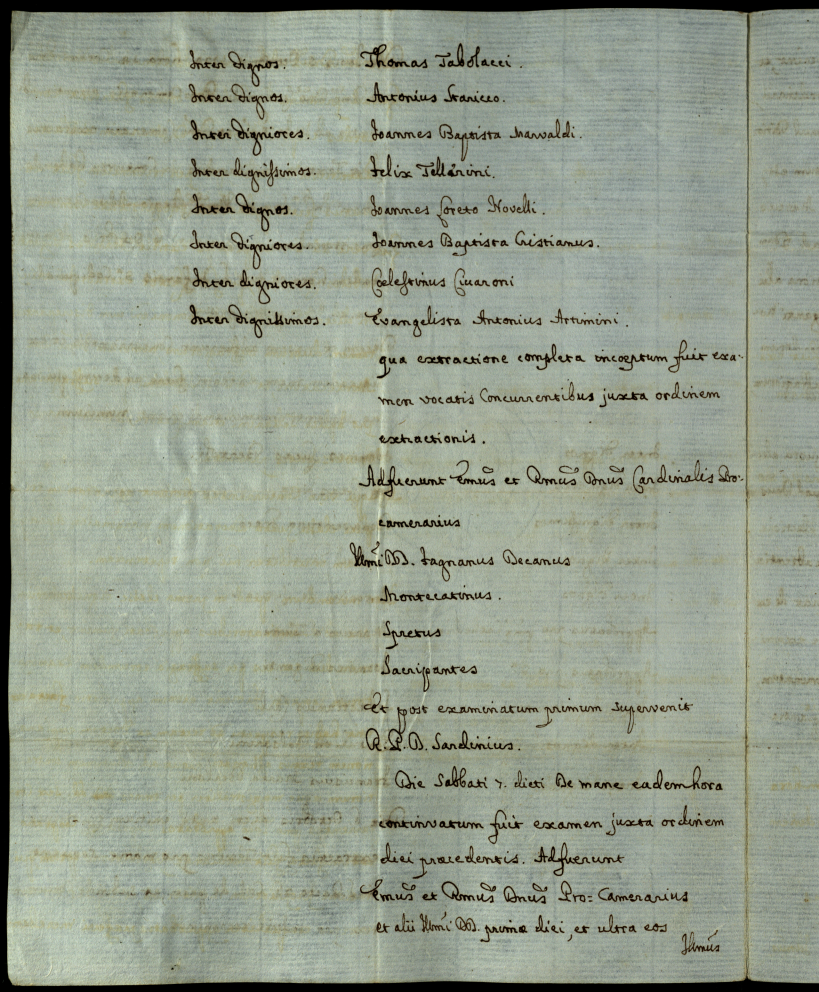 Inter dignos. Thomas Tabolacci.
Inter dignos. Antonius Staricco.
Inter digniores. Joannes Baptista Marvaldi.
Inter dignissimos. Felix Tellarini.
Inter dignos. Joannes Loreto Novelli.
Inter digniores. Joannes Baptista Cristianus.
Inter digniores. Cœlestinus Civaroni
Inter dignissimos. Evangelista Antonius Artimini.
qua extractione completa incoeptum fuit exa-
men vocatis Concurrentibus juxta ordinem
extractionis.
Adfuerunt Emus et Rmus Dnus Cardinalis Pro-
camerarius
Illmi DD. Fagnanus Decanus
Montecatinus.
Spretus
Sacripantes
Et post examinatum primum supervenit
R. P. D. Sardinius.
Die Sabbati 7. dicti De mane eadem hora
continuatum fuit examen juxta ordinem
diei præcedentis. Adfuerunt
Emus et Rmus Dnus Pro= Camerarius
et alii Illmi DD. primæ diei, et ultra eos
Illmus